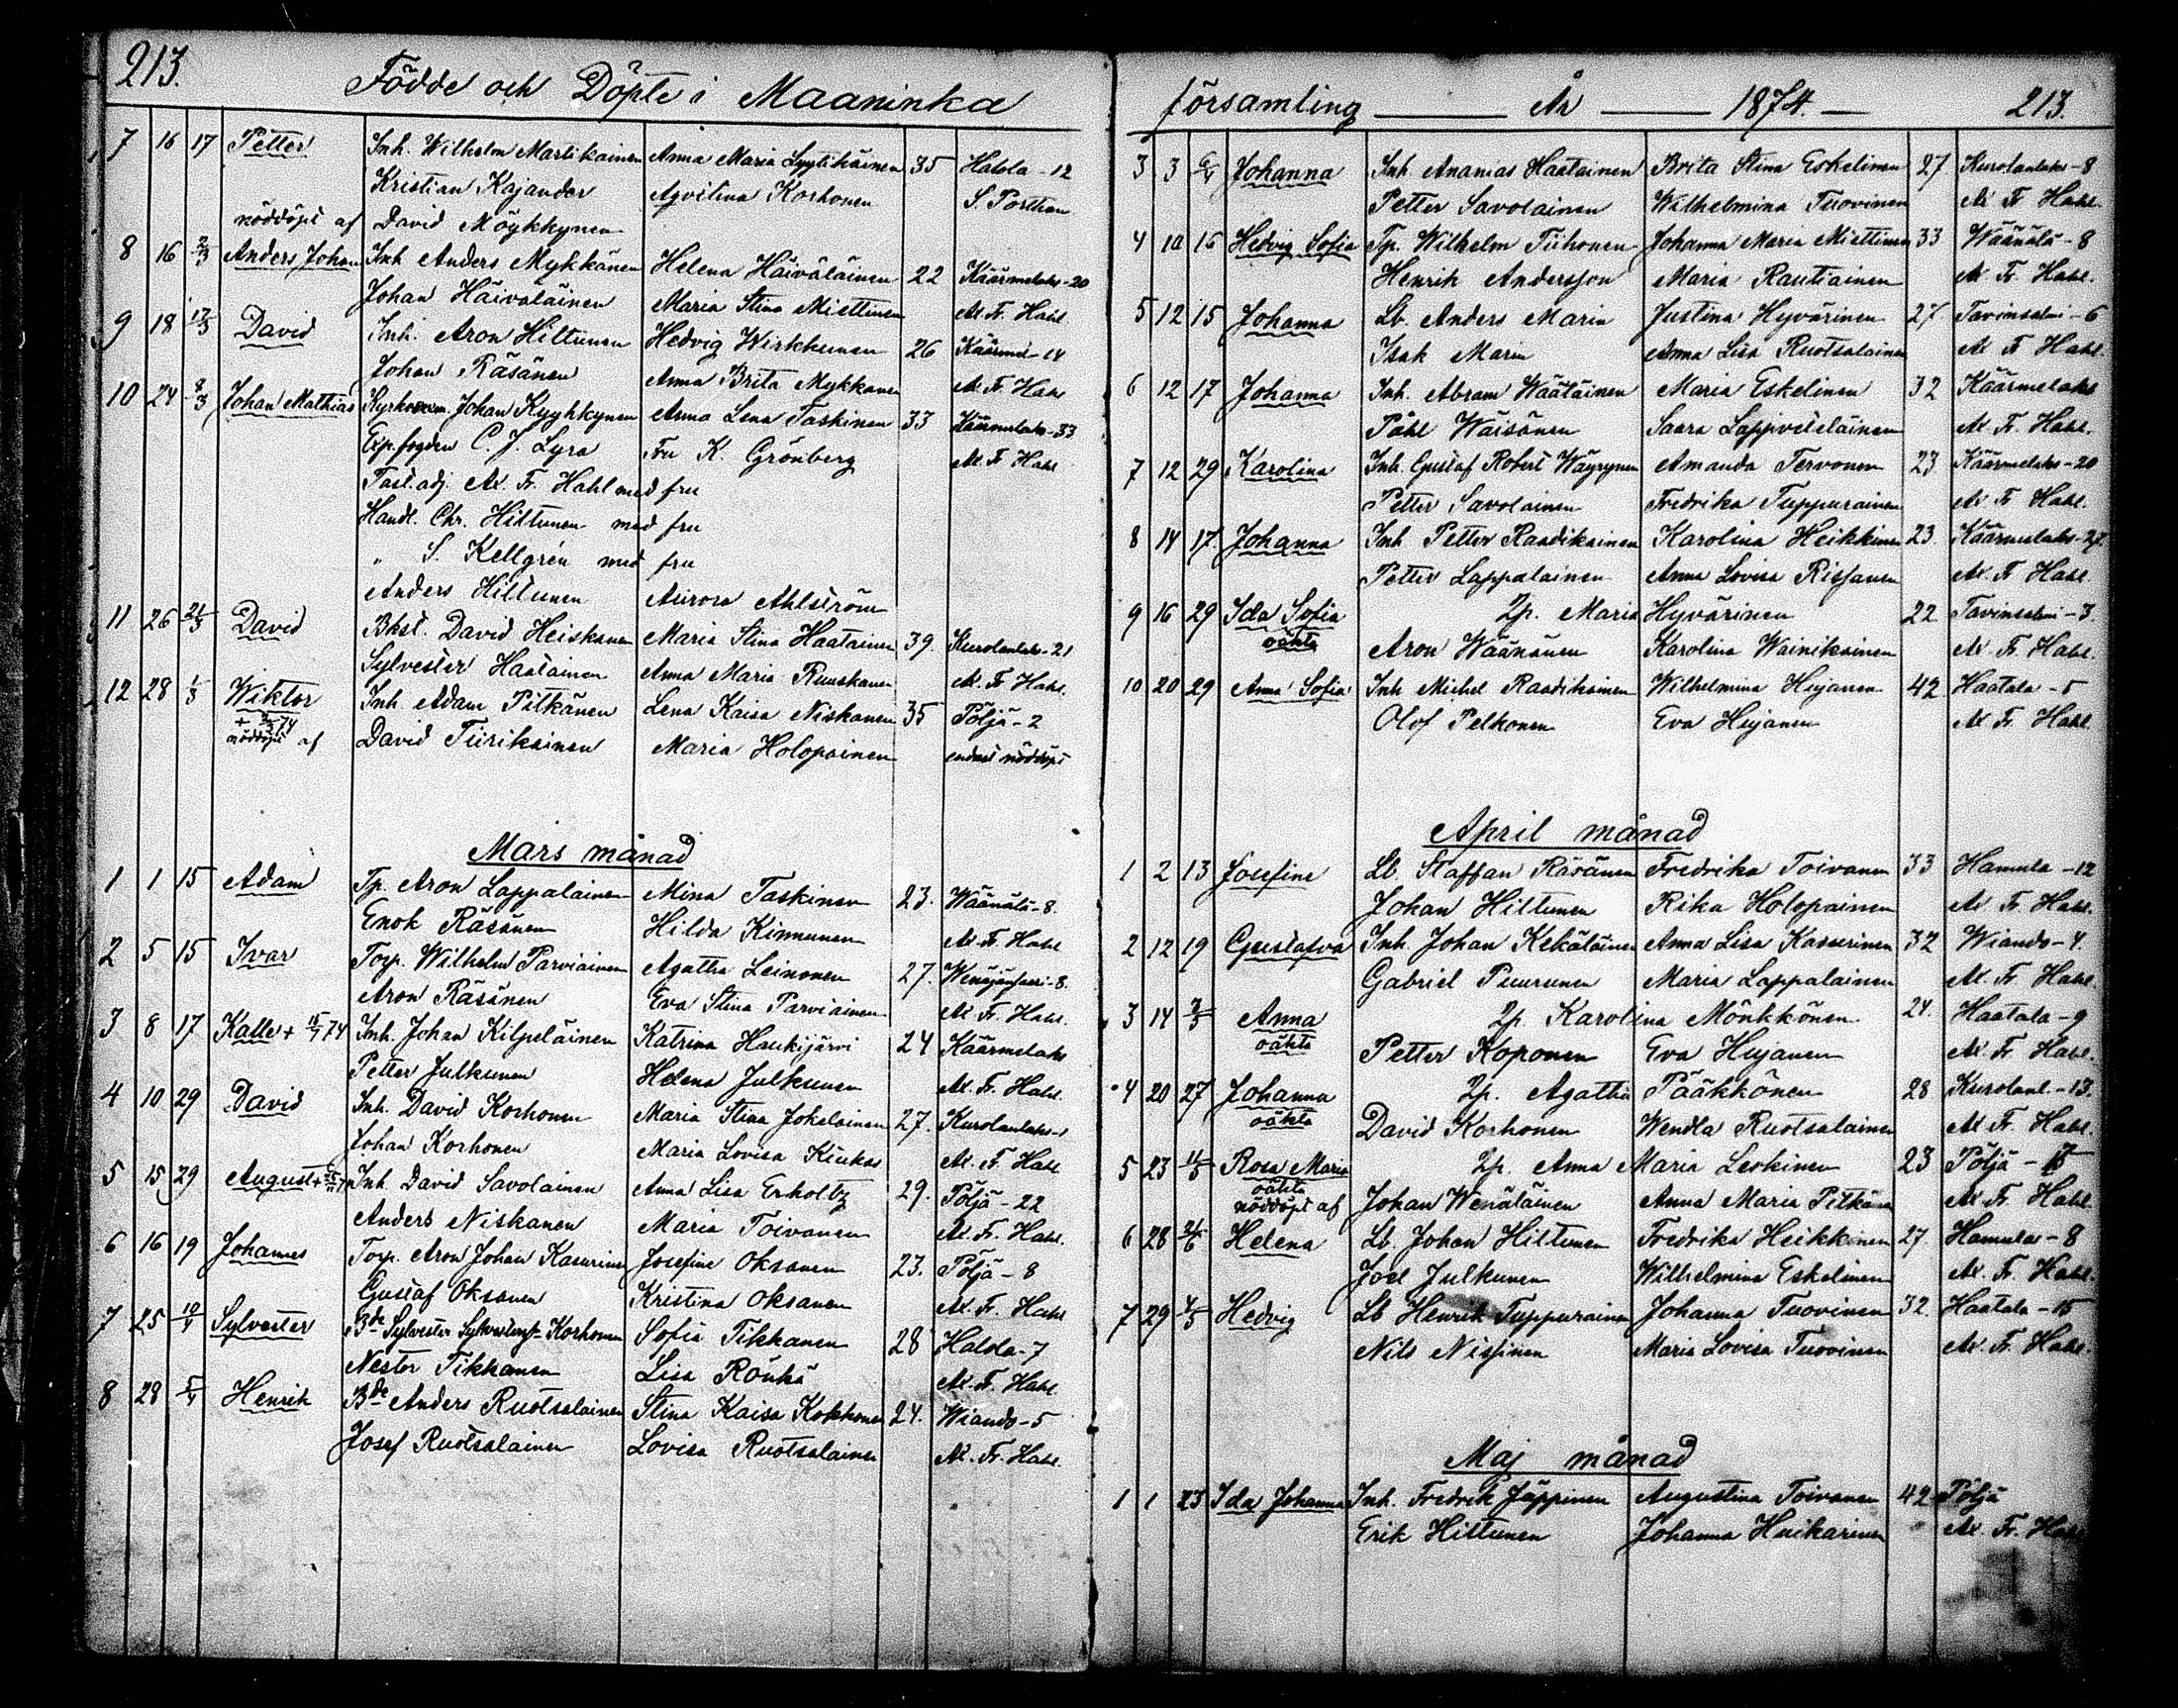 213.
Födde och Döpte i Maaninka
7 16 17 Petter Inh. Wilhelm Martikainen Anna Maria Lyytikäinen 35 Halola - 12
Kristian Kajander Agvilina Korhonen S. Porthan
nöddöpt af David Möykkynen
8 16 2/3 Anders Johan Inh Anders Mykkänen Helena Häiväläinen 22 Käärmelaks - 20
Johan Häivaläinen Maria Stina Miettinen Ax. Fr. Hahl
9 18 17/3 David Inh. Aron Hiltunen Hedvig Wirkkunen 26 Käärmel - 14
Johan Räsänen Anna Brita Mykkänen Ax. Fr. Hahl
10 24 8/3 Johan Mathias Johan Kyyhkynen Anna Lena Taskinen 33 Käärmelaks - 33
Exp. fogden C. J. Lyra Fru K. Grönberg Ax. Fr. Hahl
Past. adj. Ax. Fr. Hahl med fru
Handl. Chr. Hiltunen med fru
" S. Kellgrén med fru
Anders Hiltunen Aurora Ahlström
11 26 21/3 David Bkst. David Heiskanen Maria Stina Haatainen 39. Kurolanlaks - 21
Sylvester Haatainen Anna Maria Ruuskanen Ax. Fr. Hahl.
12 28 1/3 Wiktor Inh. Adam Pitkänen Lena Kaisa Niskanen 35 Pöljä - 2
nöddöpt af David Tiirikainen Maria Holopainen endast nöddöpt
Mars månad
1 1 15 Adam Tp. Aron Lappalainen Mina Taskinen 23. Wäänälä - 8.
Enok Räsänen Hilda Kinnunen Ax. Fr. Hahl
2 5 15 Ivar Torp. Wilhelm Parviainen Agatha Leinonen 27. Wenäjänsaari - 8.
Aron Räsänen Eva Stina Parviainen Ax. Fr. Hahl.
3 8 17 Kalle + 74 Inh. Johan Kilpeläinen Katrina Haukijärvi 24 Käärmelaks
Petter Julkunen Helena Julkunen Ax. Fr. Hahl.
4 10 29 David Inh. David Korhonen Maria Stina Jokelainen 27. Kurolanlaks - 1
Johan Korhonen Maria Lovisa Kiukas Ax. Fr. Hahl
5 15 29 August + Inh. David Savolainen Anna Lisa Erholtz 29. Pöljä - 22
Anders Niskanen Maria Toivanen Ax. Fr. Hahl.
6 16 19 Johannes Torp. Aron Johan Kasurinen Josefine Oksanen 23. Pöljä - 8
Gustaf Oksanen Kristina Oksanen Ax. Fr. Hahl
7 25 10/4 Sylvester Bde Sylvester Sylvesterss. Korhonen Sofia Tikkanen 28 Halola - 7
Nestor Tikkanen Lisa Rönkä Ax. Fr. Hahl.
8 28 5/4 Henrik Bde Anders Ruotsalainen Stina Kaisa Kokkonen 24. Wiando - 5
Josef Ruotsalainen Lovisa Ruotsalainen Ax. Fr. Hahl.
församling År 1874. 213.
3 3 6/4 Johanna Inh Ananias Haatainen Brita Stina Eskelinen 27 Kurolanlaks - 8
Petter Savolainen Wilhelmina Tuovinen Ax Fr Hahl.
4 10 15 Hedvig Sofia Tp. Wilhelm Tiihonen Johanna Maria Miettinen 33 Wäänälä - 8
Henrik Andersson Maria Rautiainen Ax Fr. Hahl.
5 12 15 Johanna Lb. Anders Marin Justina Hyvärinen 27 Tavinsalmi - 6
Isak Marin Anna Lisa Ruotsalainen Ax Fr Hahl.
6 12 17 Johanna Inh. Abram Wäätäinen Maria Eskelinen 32 Käärmelaks
Påhl Wäisänen Saara Lappveteläinen Ax. Fr. Hahl.
7 12 29 Karolina Inh. Gustaf Robert Wäyrynen Amanda Tervonen 23 Käärmelaks - 20
Petter Savolainen Fredrika Tuppurainen Ax Fr Hahl.
8 14 17. Johanna Inh Petter Raadikainen Karolina Heikkinen 23. Käärmelaks - 27.
Petter Lappalainen Anna Lovisa Rissanen Ax. Fr Hahl.
9 16 29 Ida Sofia Qp. Maria Hyvärinen 22 Tavinsalmi - 3.
oäkta Aron Wäänänen Karolina Wainikainen Ax. Fr. Hahl.
10 20 29 Anna Sofia Inh Michel Raadikainen Wilhelmina Hujanen 42 Haatala - 5
Olof Pelkonen Eva Hujanen Ax Fr. Hahl.
April månad
1 2 13 Josefine Lb. Staffan Räsänen Fredrika Toivanen 33 Hamula - 12
Johan Hiltunen Rika Holopainen Ax Fr. Hahl.
2 12 19 Gustafva Inh. Johan Kekäläinen Anna Lisa Kasurinen 32 Wiando - 4.
Gabriel Puurunen Maria Lappalainen Ax. Fr. Hahl.
3 14 3/5 Anna Qp. Karolina Mönkkönen. 24. Haatala - 9
oäkta Petter Koponen Eva Hujanen Ax. Fr. Hahl.
4 20 27 Johanna Qp. Agatha Pääkkönen 28 Kurolanl - 13.
oäkta David Korhonen Wendla Ruotsalainen Ax Fr. Hahl.
5 23 11/5 Rosa Maria Qp. Anna Maria Leskinen 23 Pöljä - 15
oäkta
nöddöpt af Johan Wenäläinen Anna Maria Pitkänen Ax. Fr. Hahl.
6 28 21/6 Helena Lb. Johan Hiltunen Fredrika Heikkinen 27 Hamula - 8
Joel Julkunen Wilhelmina Eskelinen Ax. Fr. Hahl.
7 29 4/5 Hedvig Lb Henrik Tuppurainen Johanna Tuovinen 32. Haatala - 15
Nils Nissinen Maria Lovisa Tuovinen Ax. Fr. Hahl.
Maj månad
1 1 23 Ida Johanna Inh. Fredrik Jäppinen Augustina Toivanen 42 Pöljä
Erik Hiltunen Johanna Huikarinen Ax. Fr. Hahl